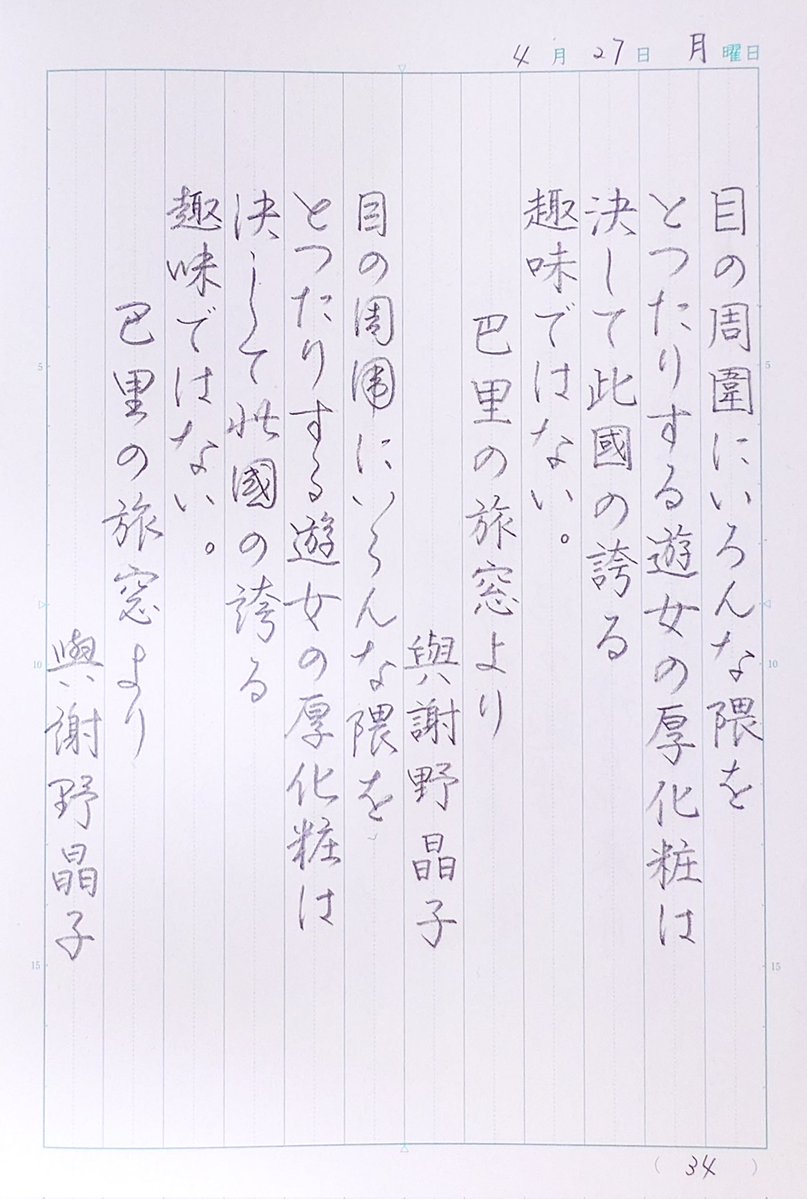 4月27日 月曜日
目の周圍にいろんな隈を
とつたりする遊女の厚化粧は
決して此國の誇る
趣味ではない。
巴里の旅窓より
與謝野晶子
目の周圍にいろんな隈を
とつたりする遊女の厚化粧は
決して此國の誇る
趣味ではない。
巴里の旅窓より
與謝野晶子
5
10
15
5
10
15
(34)